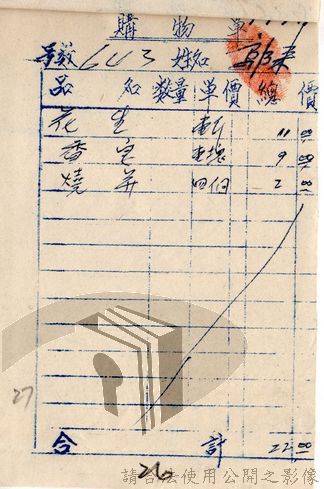 購物單
號數 643 姓名
品名 數量 單價 總價
花生 11 00
香皂 壹塊 9 00
燒餅 四個 2 00
合計 22 00
27
26
請合法使用公開之影像